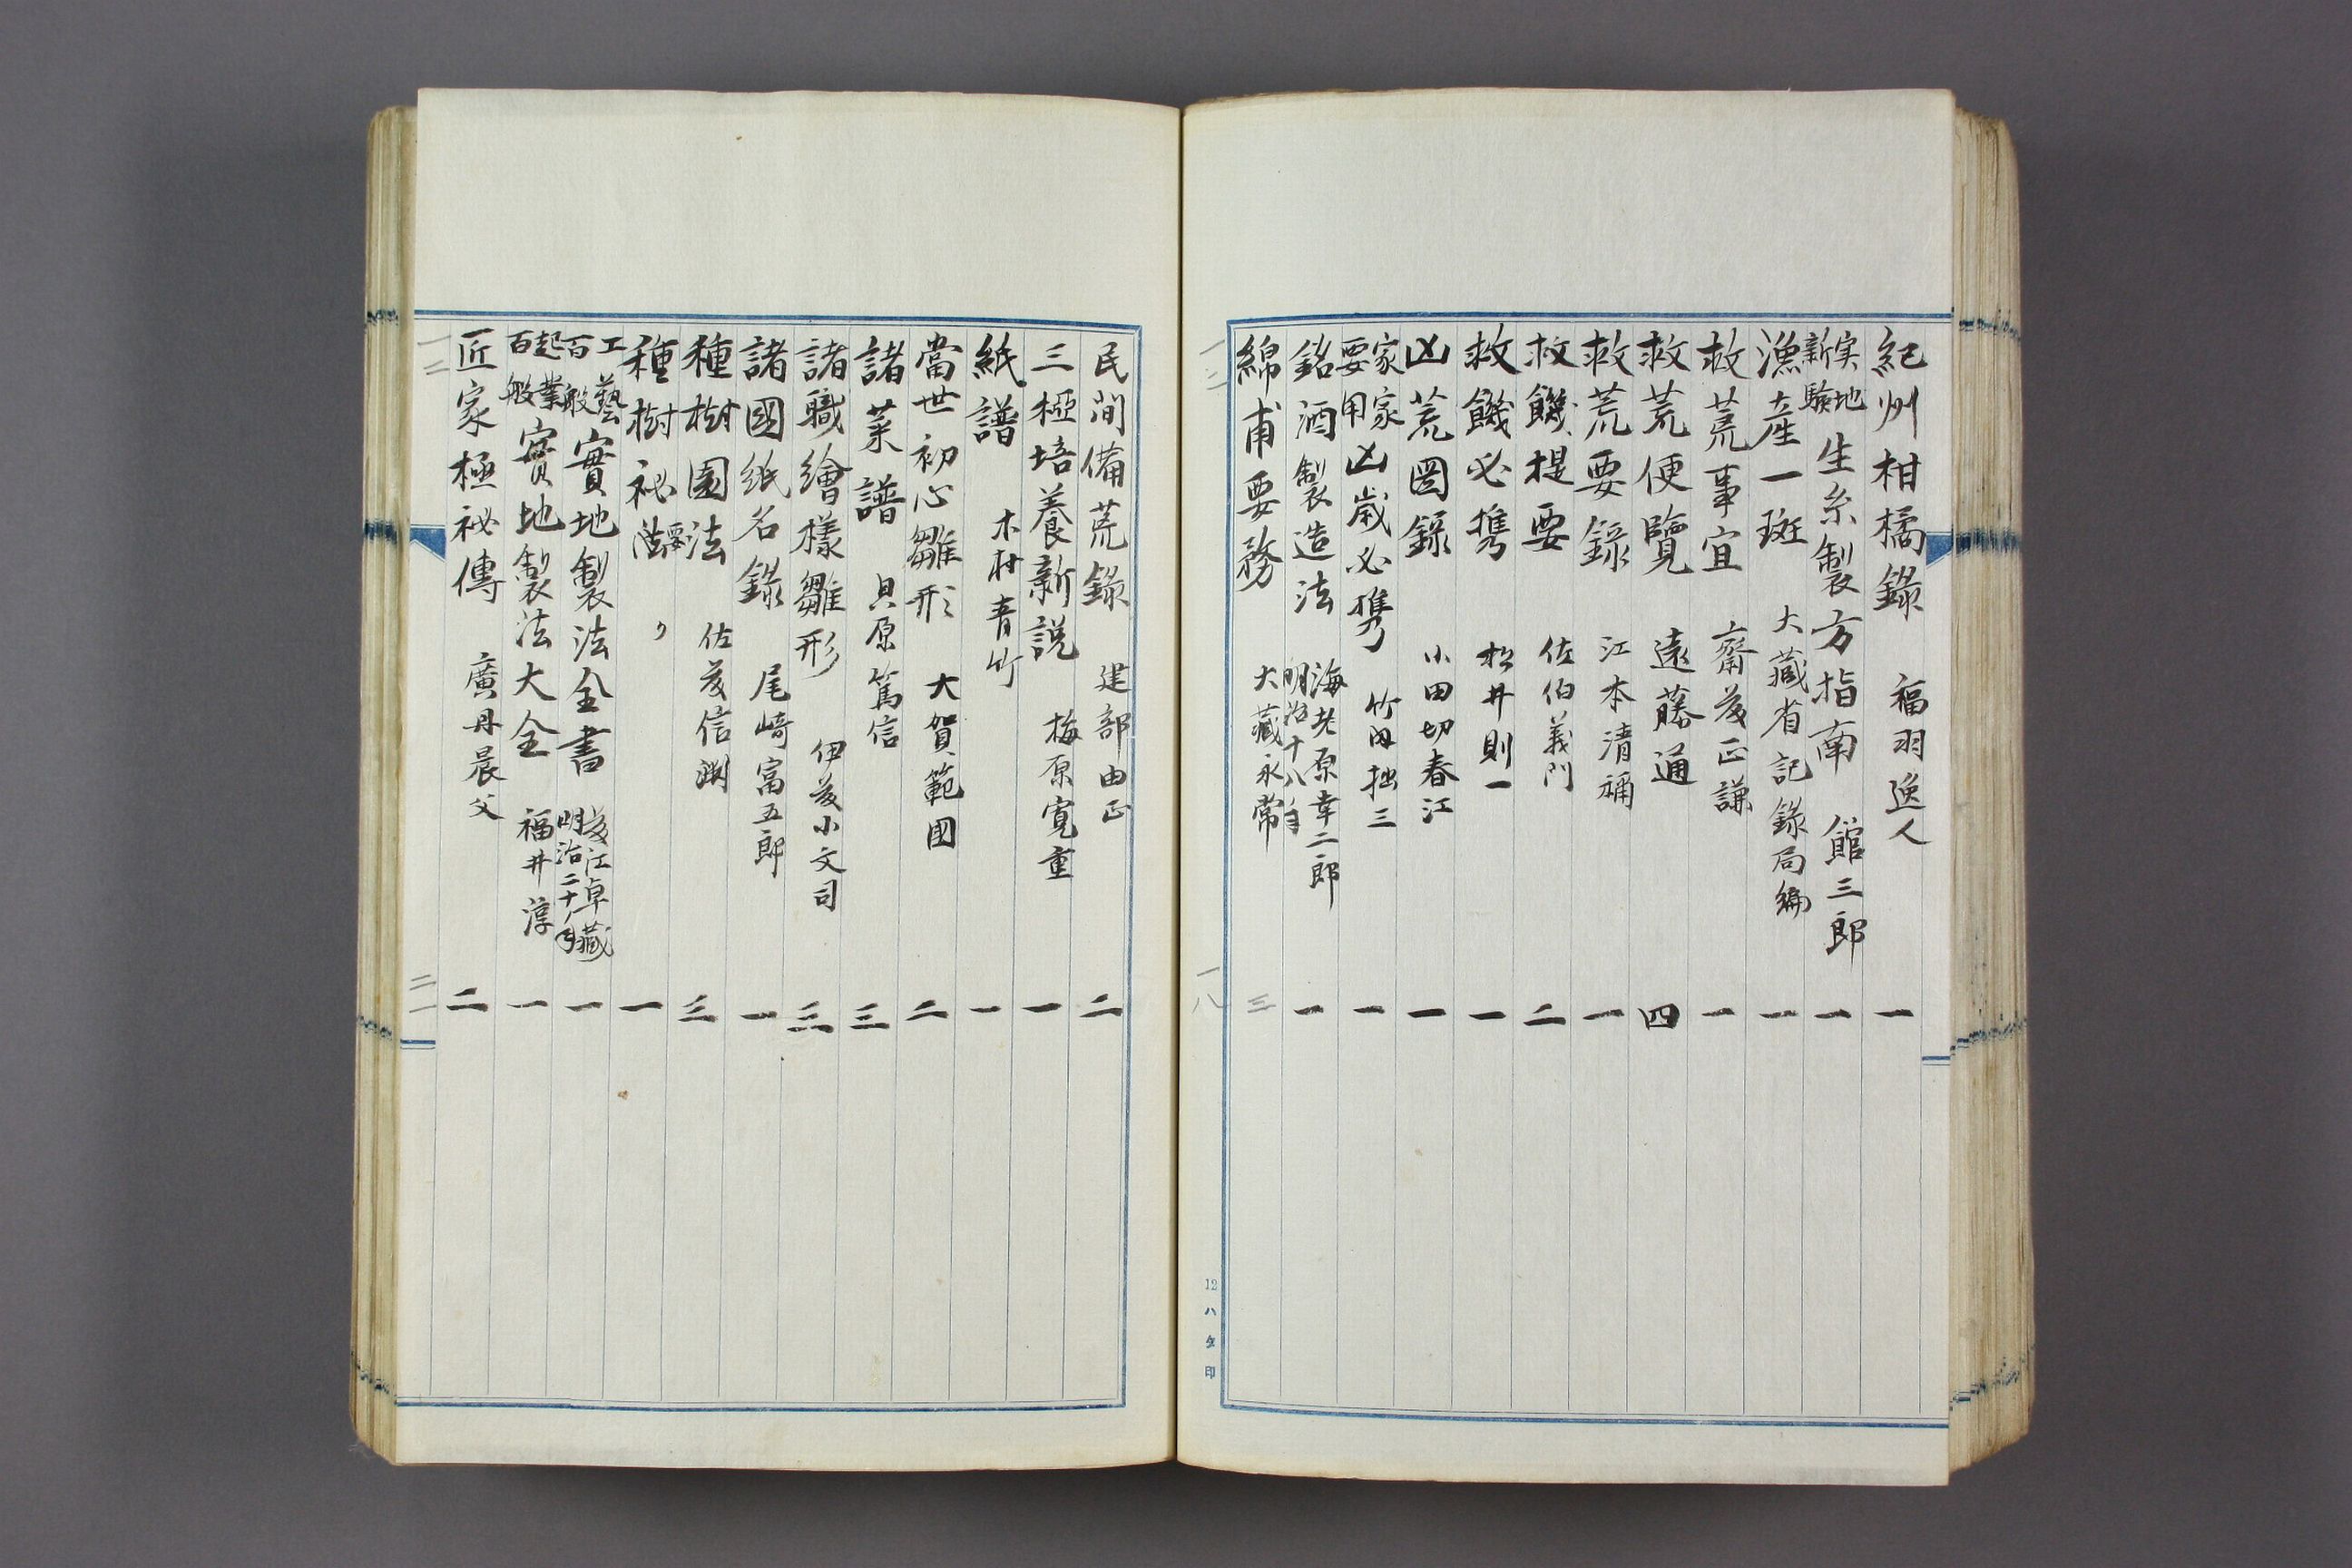 紀州柑橘錄 福羽逸人 一
実地新驗 生糸製方指南 館三郎 一
漁産一斑 大藏省記錄局編 一
救荒事宜 齋藤正謙 一
救荒便覽 遠藤通 四
救荒要錄 江本清 一
救饑提要 佐伯義門 二
救饑必携 松井則一 一
凶荒圖錄 小田切春江 一
家家要用 凶歳必携 竹内拙三 一
銘酒製造法 海老原幸二郎 明治十八年 一
綿甫要務 大藏永常 三
一二 一八
12 ハタ印
民間備荒錄 建部由正 二
三椏培養新説 梅原寛重 一
紙譜 木村青竹 一
當世初心雛形 大賀範國 二
諸菜譜 貝原篤信 三
諸職繪樣雛形 伊藤小文司 三
諸國紙名錄 尾崎富五郎 一
種樹園法 佐藤信淵 三
種樹祕要 〃 一
工藝百般 實地製法全書 藤江卓藏 明治二十年 一
起業百般 實地製法大全 福井淳 一
匠家極祕傳 廣丹晨父 二
一二 二一